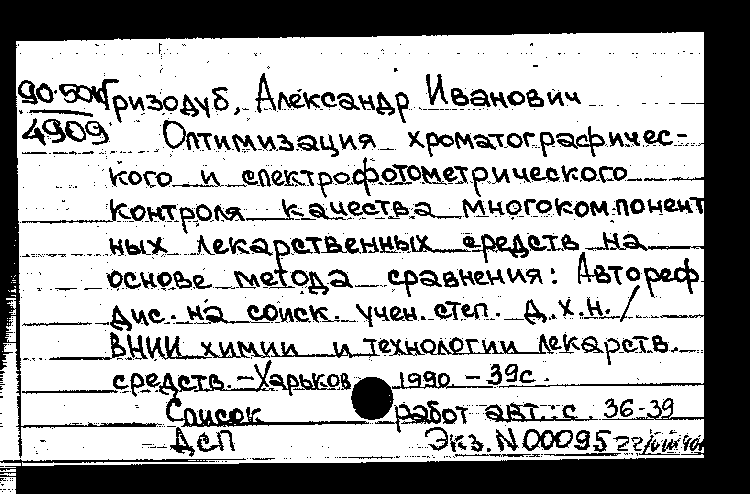 90-50к Гризодуб, Александр Иванович
4909 Оптимизация хроматографичес-
кого и спектрофотометрического
контроля качества многокомпонент
ных лекарственных средств на
основе метода сравнения: Автореф
дис. на соиск. учен. степ. д.х.н./
ВНИИ химии и технологии лекарств.
средств. - Харьков 1990. - 39с.
Список работ авт.: с. 36-39
ДСП Экз. N 00095